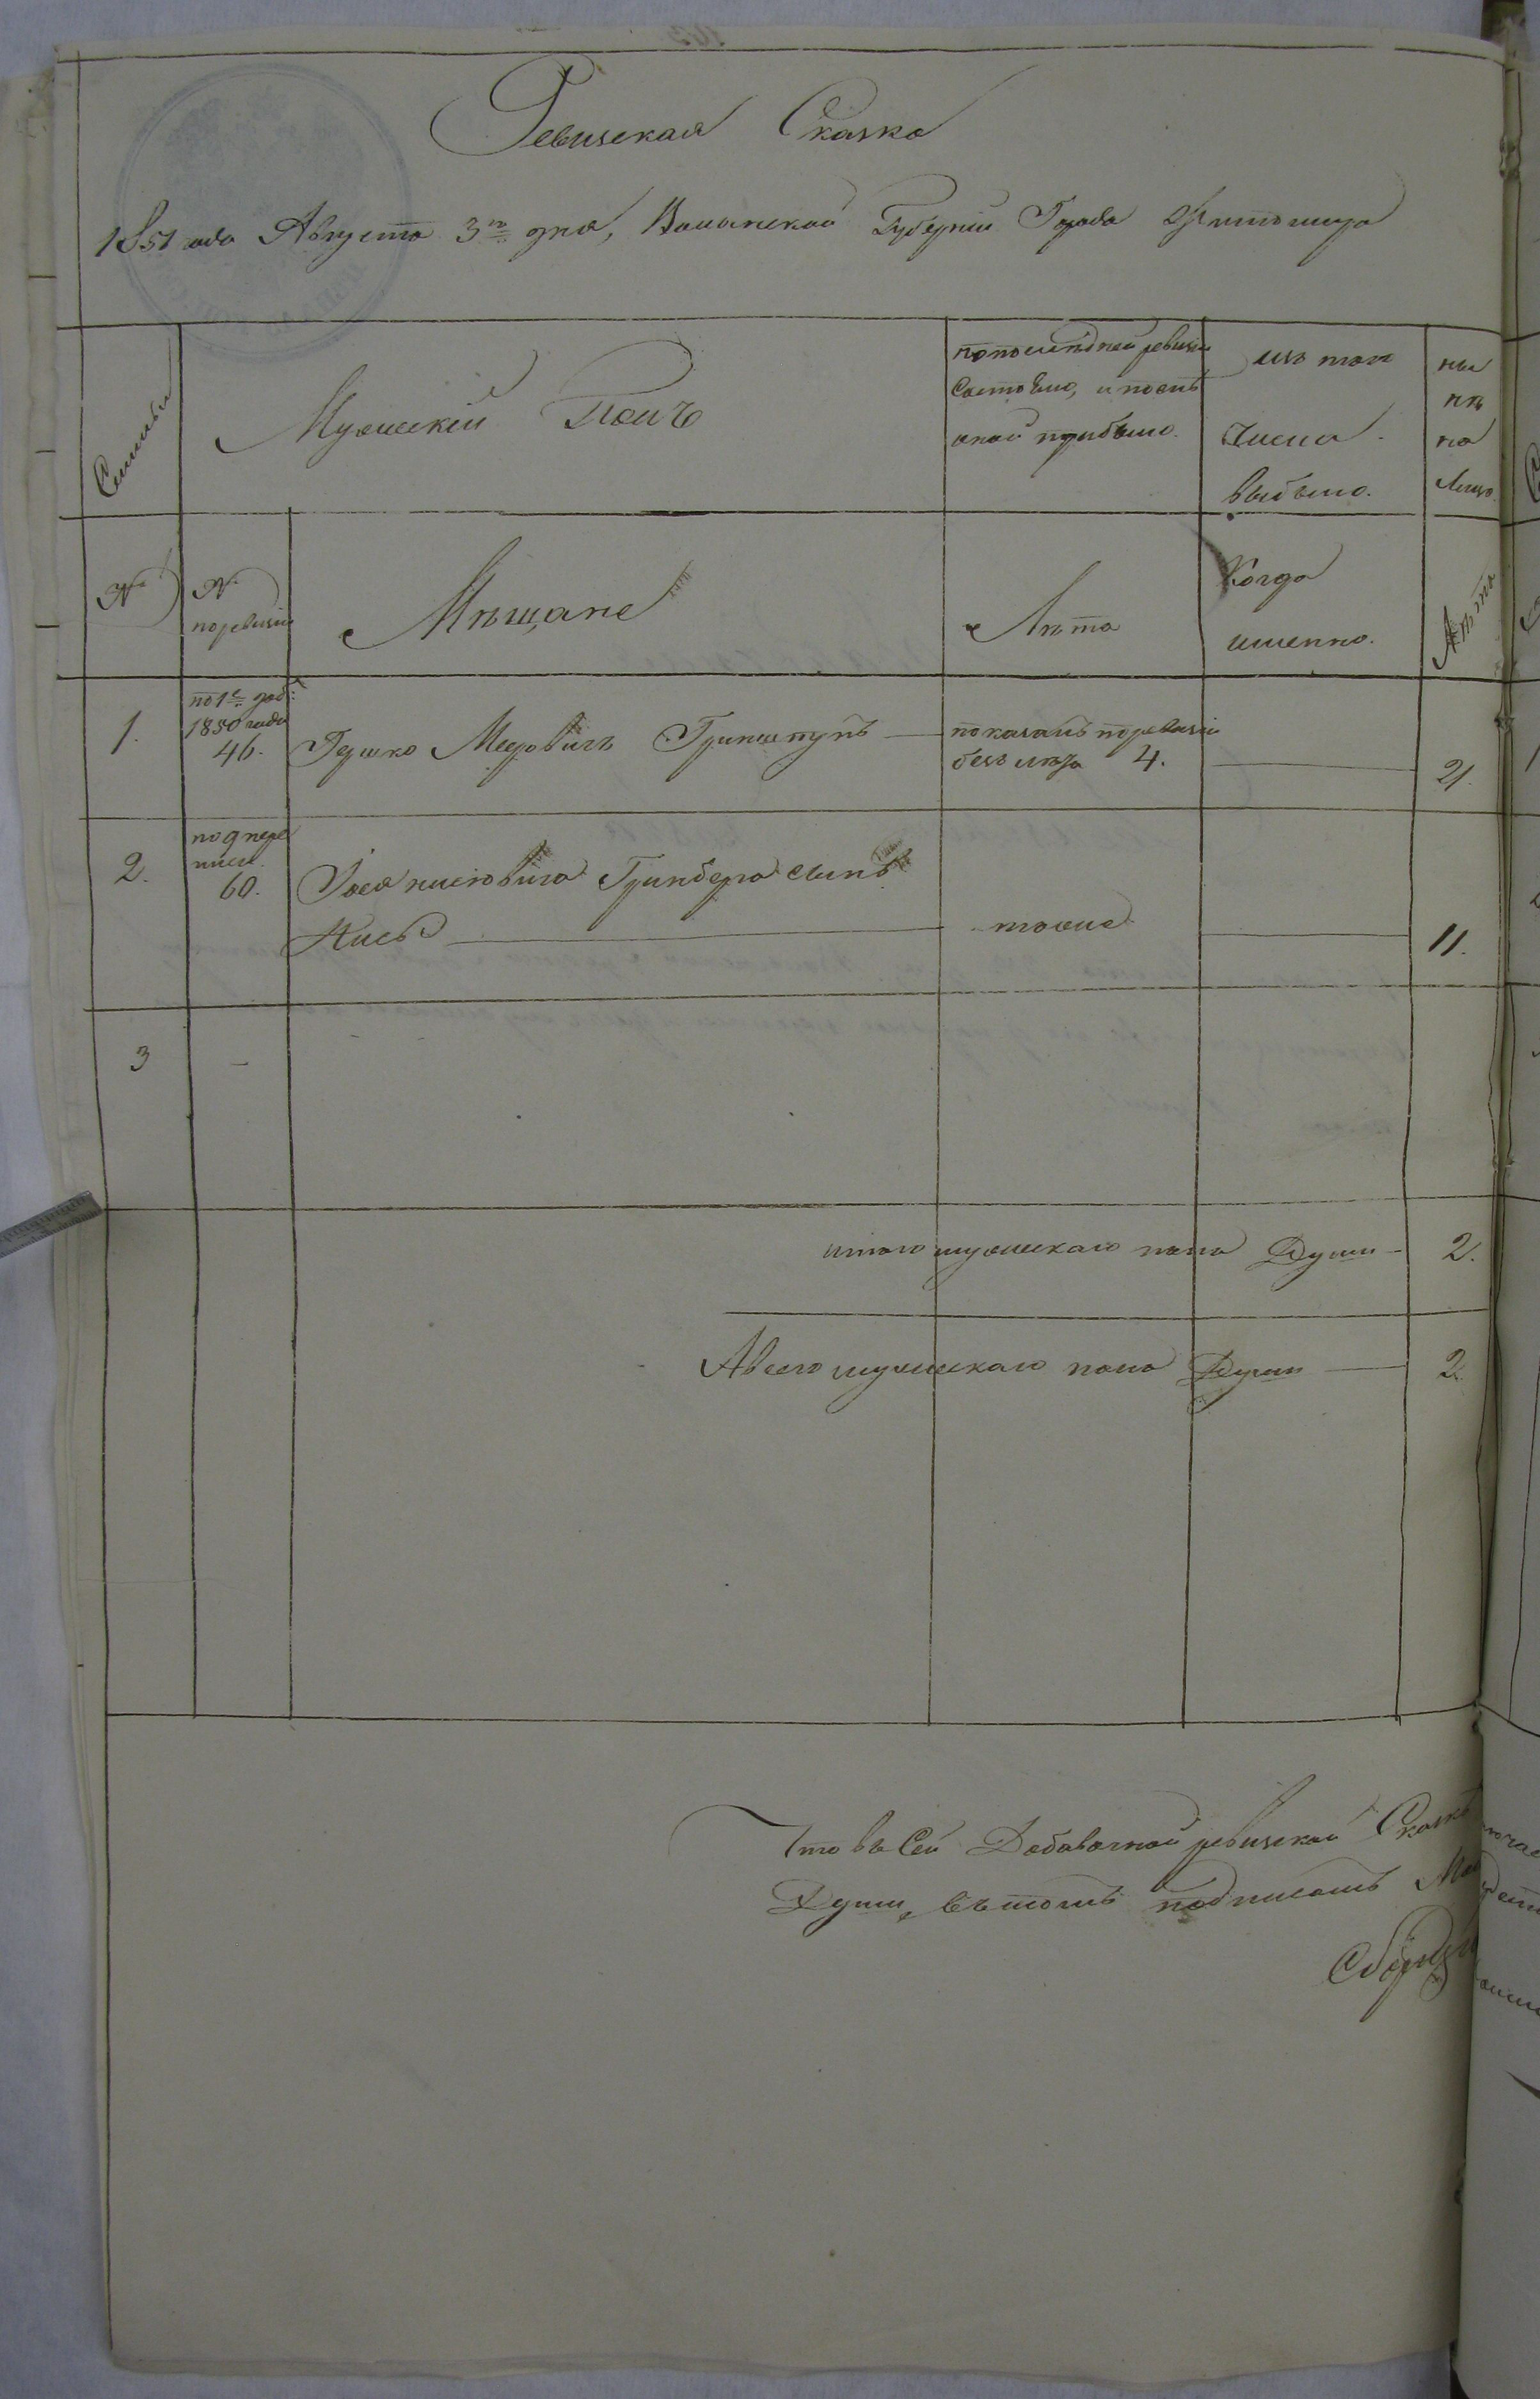 Ревизская Сказка
1851 года Августа 3го дня, Волынской Губернии Города Житомира
Семьи
Мужескій Полъ
по последней ревизіи
состояло, и после
оной прибыло.
изъ того
числа
выбыло.
ны
нѣ
на
лицо.
№
№
по ревизіи
Мѣщане
Лѣта
Когда
именно.
Лѣта
1.
по 1й доб:
1850 года
46.
Гершко Мееровичъ Гринштупъ
показанъ по ревизіи
безъ лѣтъ 4.
21.
2.
по 9 пере
писи.
60.
Іося Кисювича Гринберга сынъ
Кись
тоже
11.
3
итого мужескаго пола Души 2.
А всего мужескаго пола Души 2.
Что въ Сей Добавочной ревизской Сказкѣ
Души, въ томъ подписомъ